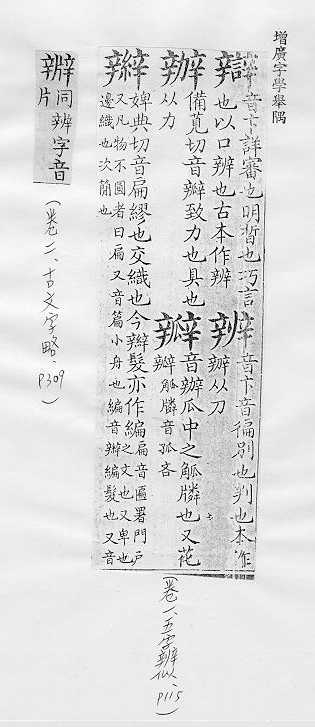 增廣字學舉隅
辯 音卞詳審也明晳也巧言
也以口辨也古本作辨
辨 音卞音徧別也判也本作
辦从刀
辦 備莧切音瓣致力也具也
从力
瓣 音辦瓜中之觚𤬓也又花
瓣觚𤬓音孤吝
辮 婢典切音扁繆也交織也今辮髮亦作編扁音匾署門戶
又凡物不圓者曰扁又音篇小舟也編音辮編髮也又音
邊織也次簡也
之文也又卑也
(卷一、五字辨似、P115)
辨 同辨字音
片
(卷二、古文字略、P309)